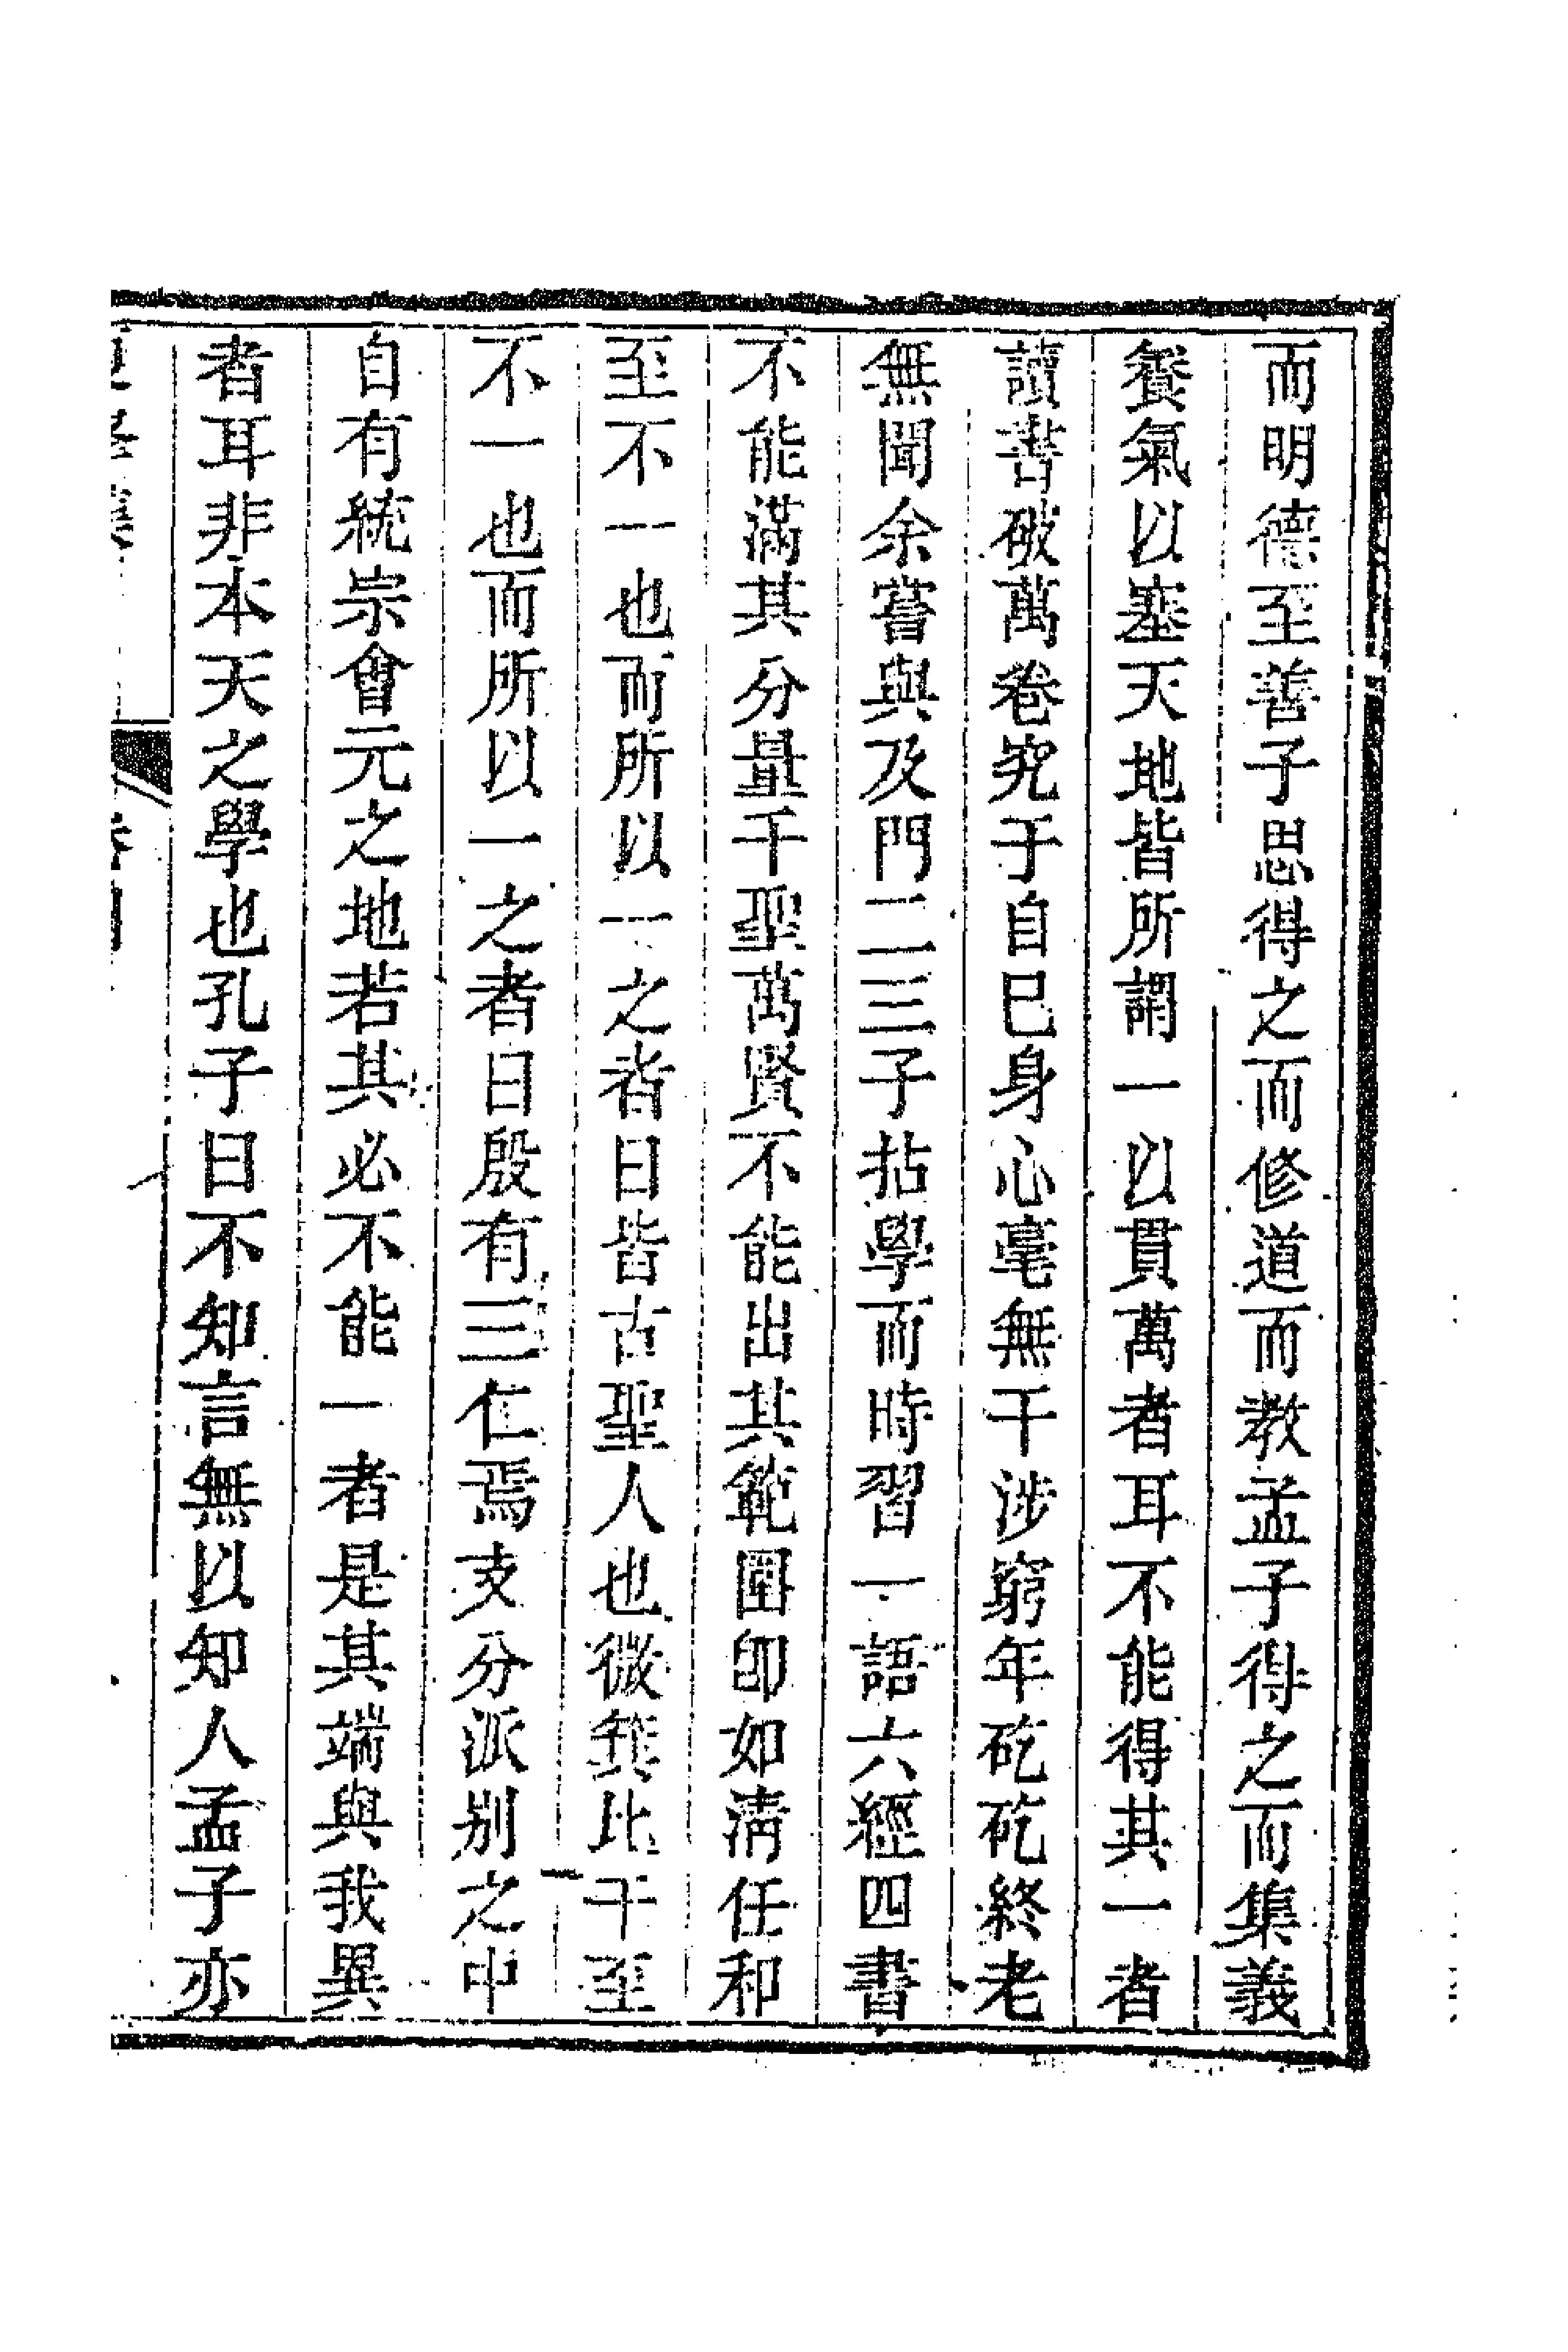 而明德至善子思得之而修道而教孟子得之而集義
養氣以塞天地皆所謂一以貫萬者耳不能得其一者
讀書破萬卷究于自已身心毫無干涉窮年矻矻終老
無聞余嘗與及門二三子拈學而時習一語六經四書
不能滿其分量千聖萬賢不能出其範圍卽如淸任和
至不一也而所以一之者曰皆古聖人也微箕比干至
不一也而所以一之者曰殷有三仁焉支分派别之中
自有統宗會元之地若其必不能一者是其端與我異
者耳非本天之學也孔子曰不知言無以知人孟子亦